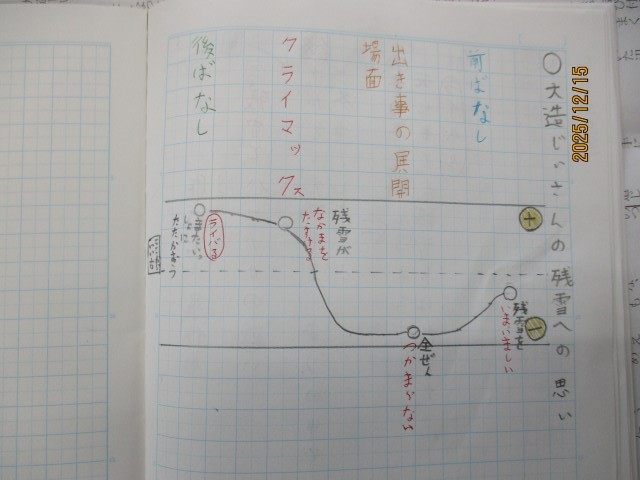 ○大造じいさんの残雪への思い
前ばなし
出き事の展開
場面
クライマックス
後ばなし
+
残雪を
いまいましい
全ぜん
つかまらない
残雪が
なかまを
たすける
ライバル
また
たたかおう
2025/12/15